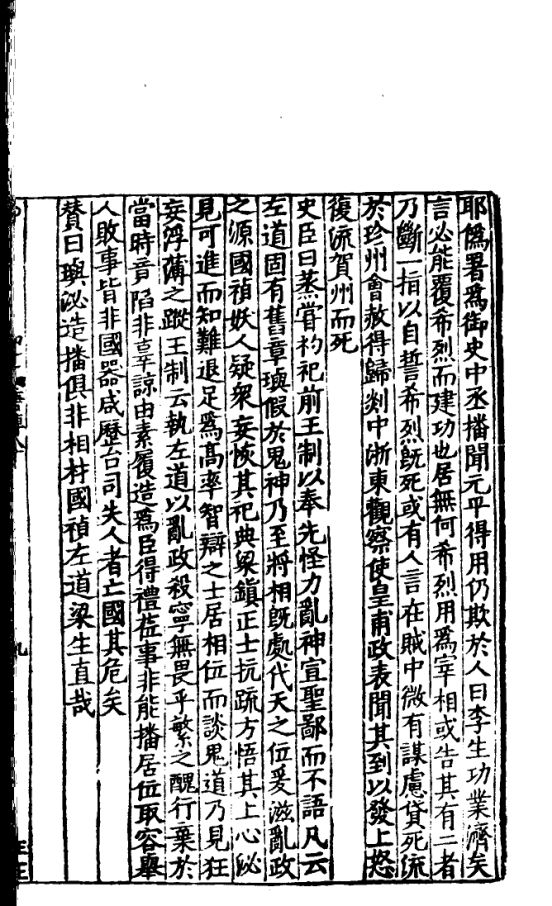 耶偽署爲御史中丞播聞元平得用仍欺於人曰李生功業濟矣
言必能覆希烈而建功也居無何希烈用爲宰相或告其有二者
乃斷一指以自誓希烈既死或有人言在賊中微有謀慮貸死流
於珍州會赦得歸剡中浙東觀察使皇甫政表聞其到以發上怒
復流賀州而死
史臣曰蒸嘗礿祀前王制以奉先怪力亂神宣聖鄙而不語凡云
左道固有舊章璵假於鬼神乃至將相既處代天之位爰滋亂政
之源國禎妖人疑衆妄恢其祀典梁鎮正士抗疏方悟其上心泌
見可進而知難退足爲高率智辯之士居相位而談鬼道乃見狂
妄浮薄之蹤王制云執左道以亂政殺寧無畏乎繁之醜行棄於
當時竟陷非辜諒由素履造爲臣得禮莅事非能播居位取容舉
人敗事皆非國器咸歷台司失人者亡國其危矣
賛曰璵泌造播俱非相材國禎左道梁生直哉